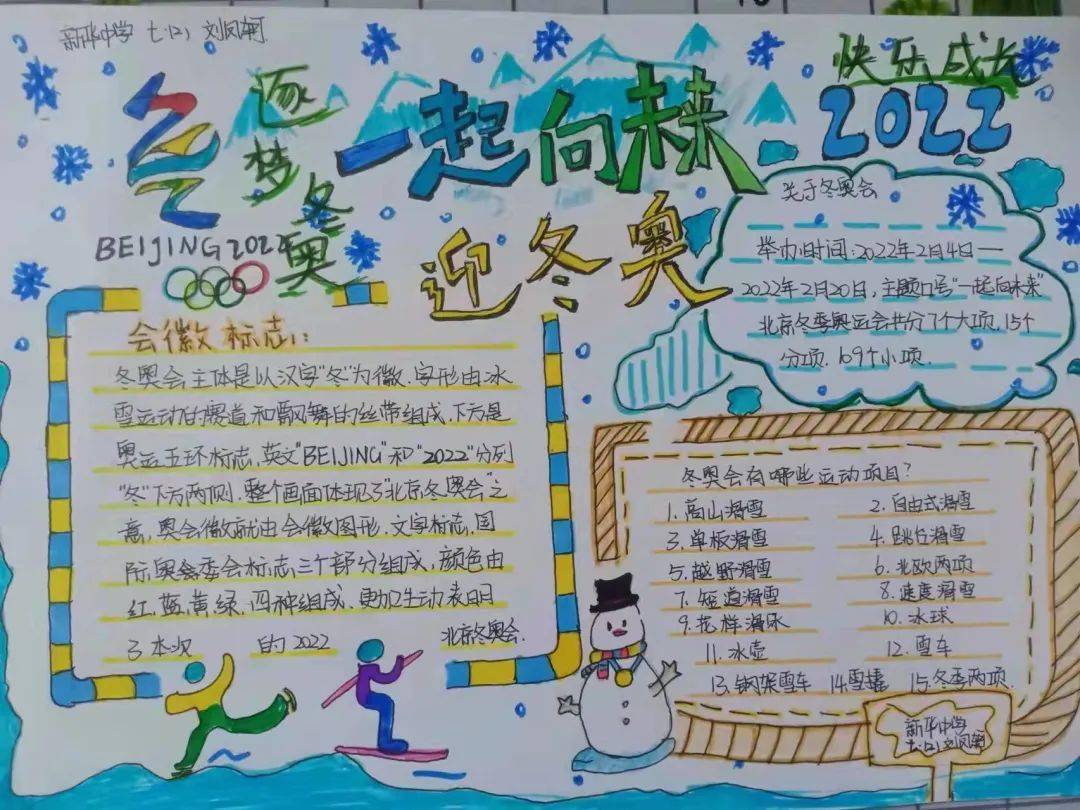 新华中学 七.(2) 刘凤菊
快乐成长
2022
逐梦冬奥
一起向未来
迎冬奥
BEIJING 2022
会徽标志:
冬奥会主体是以汉字"冬"为徽.字形由冰
雪运动的赛道和飘舞的丝带组成.下方是
奥运五环标志,英文"BEIJING"和"2022"分列
"冬"下方两侧.整个画面体现了"北京冬奥会"之
意,奥会徽就由会徽图形.文字标志,国
际奥委会标志三个部分组成,颜色由
红.蓝.黄.绿.四种组成.更加生动表明
了本次 的2022 北京冬奥会.
关于冬奥会
举办时间:2022年2月4日——
2022年2月20日,主题口号"一起向未来"
北京冬季奥运会共分7个大项,15个
分项.109个小项.
冬奥会有哪些运动项目?
1.高山滑雪 2.自由式滑雪
3.单板滑雪 4.跳台滑雪
5.越野滑雪 6.北欧两项
7.短道滑雪 8.速度滑雪
9.花样滑冰 10.冰球
11.冰壶 12.雪车
13.钢架雪车 14雪橇 15.冬季两项.
新华中学
七.(2)刘凤菊